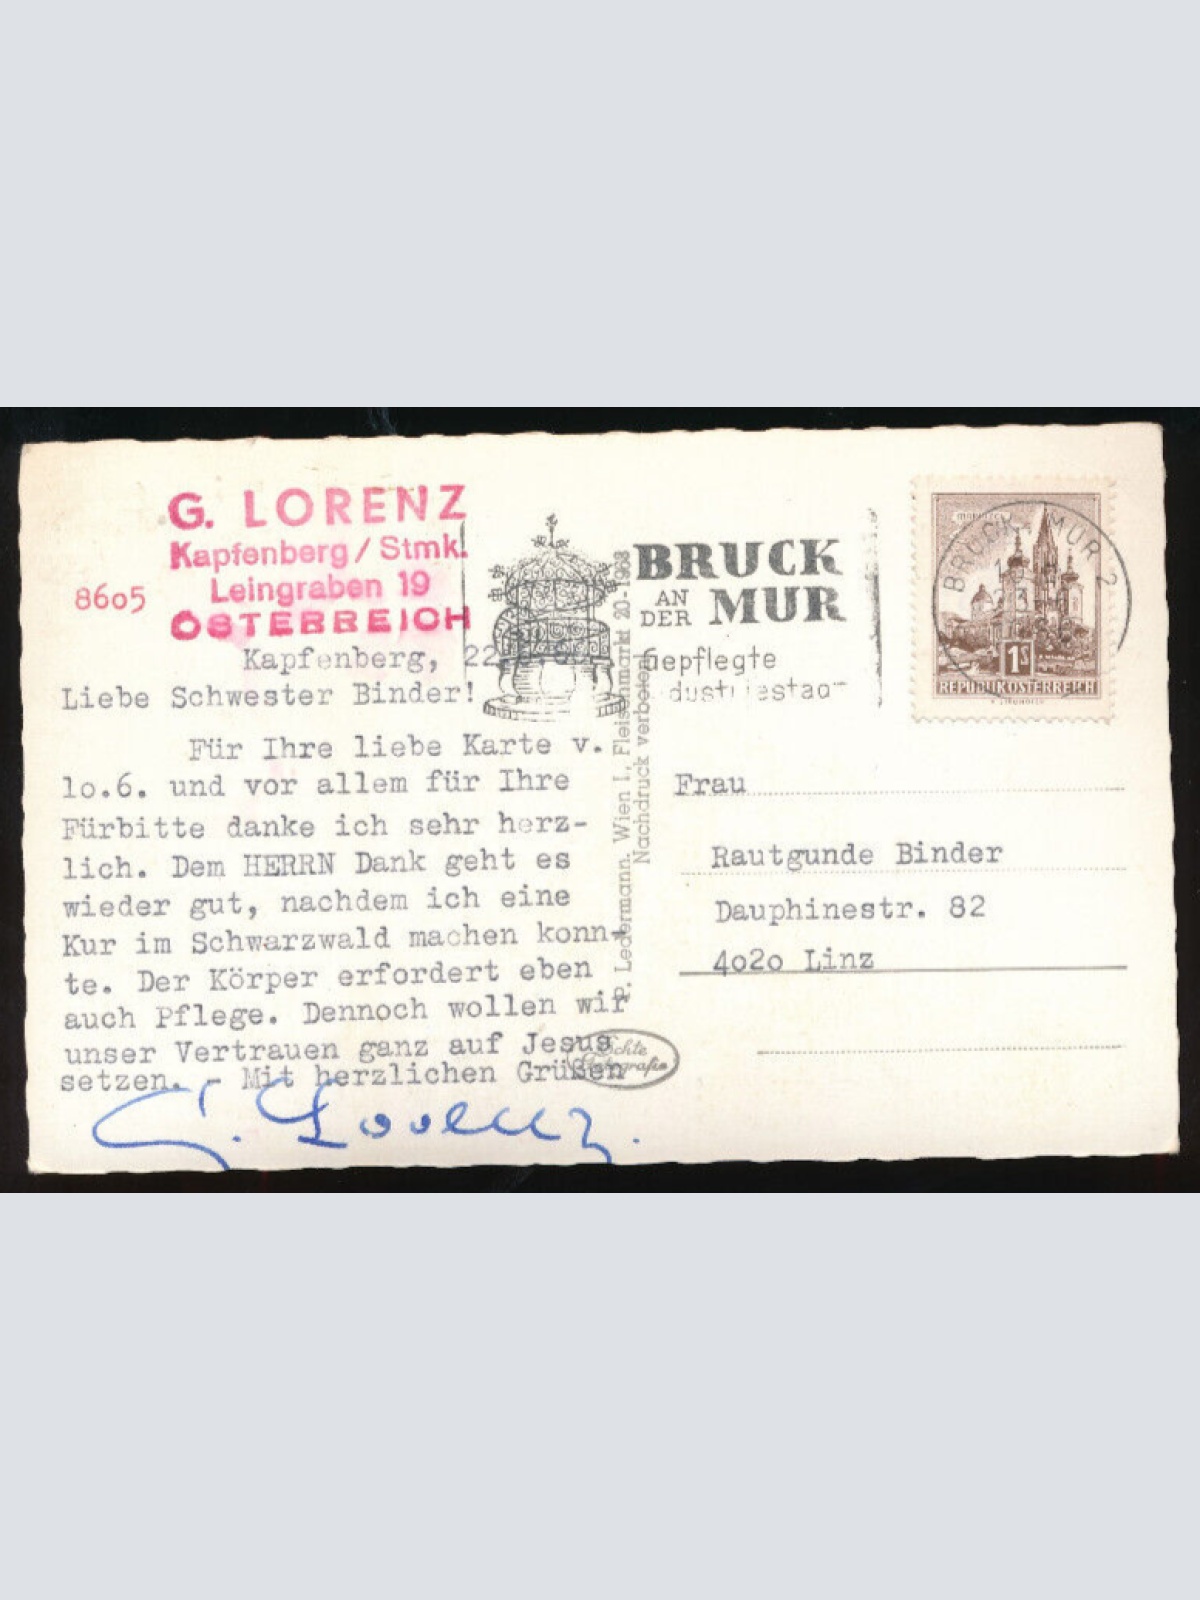 G. LORENZ
Kapfenberg / Stmk.
Leingraben 19
8605
ÖSTERREICH
Kapfenberg, 22.
Liebe Schwester Binder!
Für Ihre liebe Karte v.
lo.6. und vor allem für Ihre
Fürbitte danke ich sehr herz-
lich. Dem HERRN Dank geht es
wieder gut, nachdem ich eine
Kur im Schwarzwald machen konn-
te. Der Körper erfordert eben
auch Pflege. Dennoch wollen wir
unser Vertrauen ganz auf Jesus
setzen. - Mit herzlichen Grüßen
G. Lorenz.
P. Ledermann. Wien I., Fleischmarkt 20-1968
Nachdruck verboten
Echte
Fotografie
BRUCK
AN DER MUR
Gepflegte
dustriestadt
BRUCK / MUR 2
MARIAZELL
1S
REPUBLIK ÖSTERREICH
Frau
Rautgunde Binder
Dauphinestr. 82
4o2o Linz